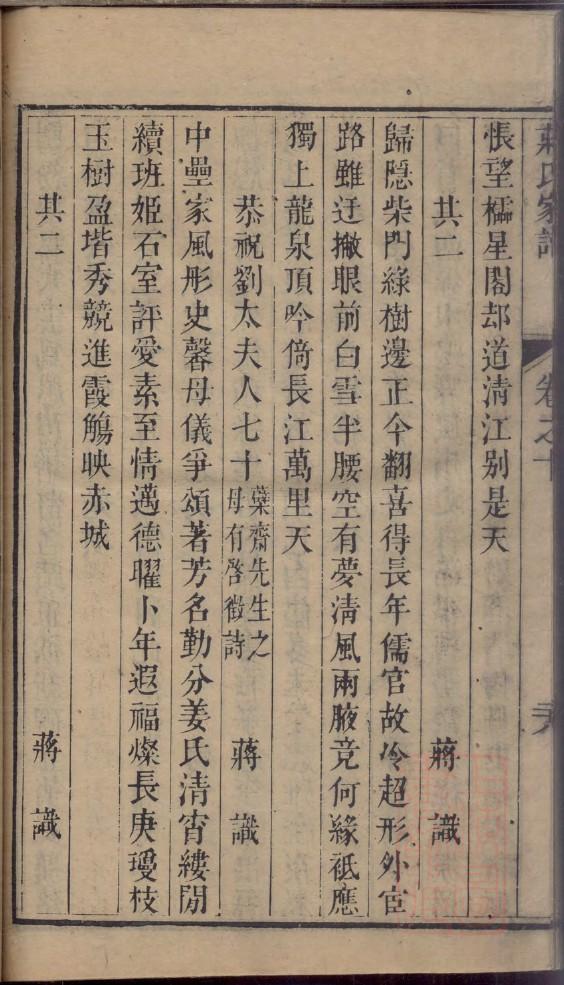 蔣氏家譜 卷之十
悵望櫺星閣却道清江别是天
其二 蔣識
歸隱柴門綠樹邊正今翻喜得長年儒官故冷超形外宦
路雖迂撇眼前白雪半腰空有夢清風兩腋竟何緣祗應
獨上龍泉頂吟倚長江萬里天
恭祝劉太夫人七十 葉齋先生之母有啓徵詩 蔣識
中壘家風形史馨母儀爭頌著芳名勤分姜氏清宵縷閒
續班姬石室評愛素至情邁德曜卜年遐福燦長庚璦枝
玉樹盈堦秀競進霞觴映赤城
其二 蔣識